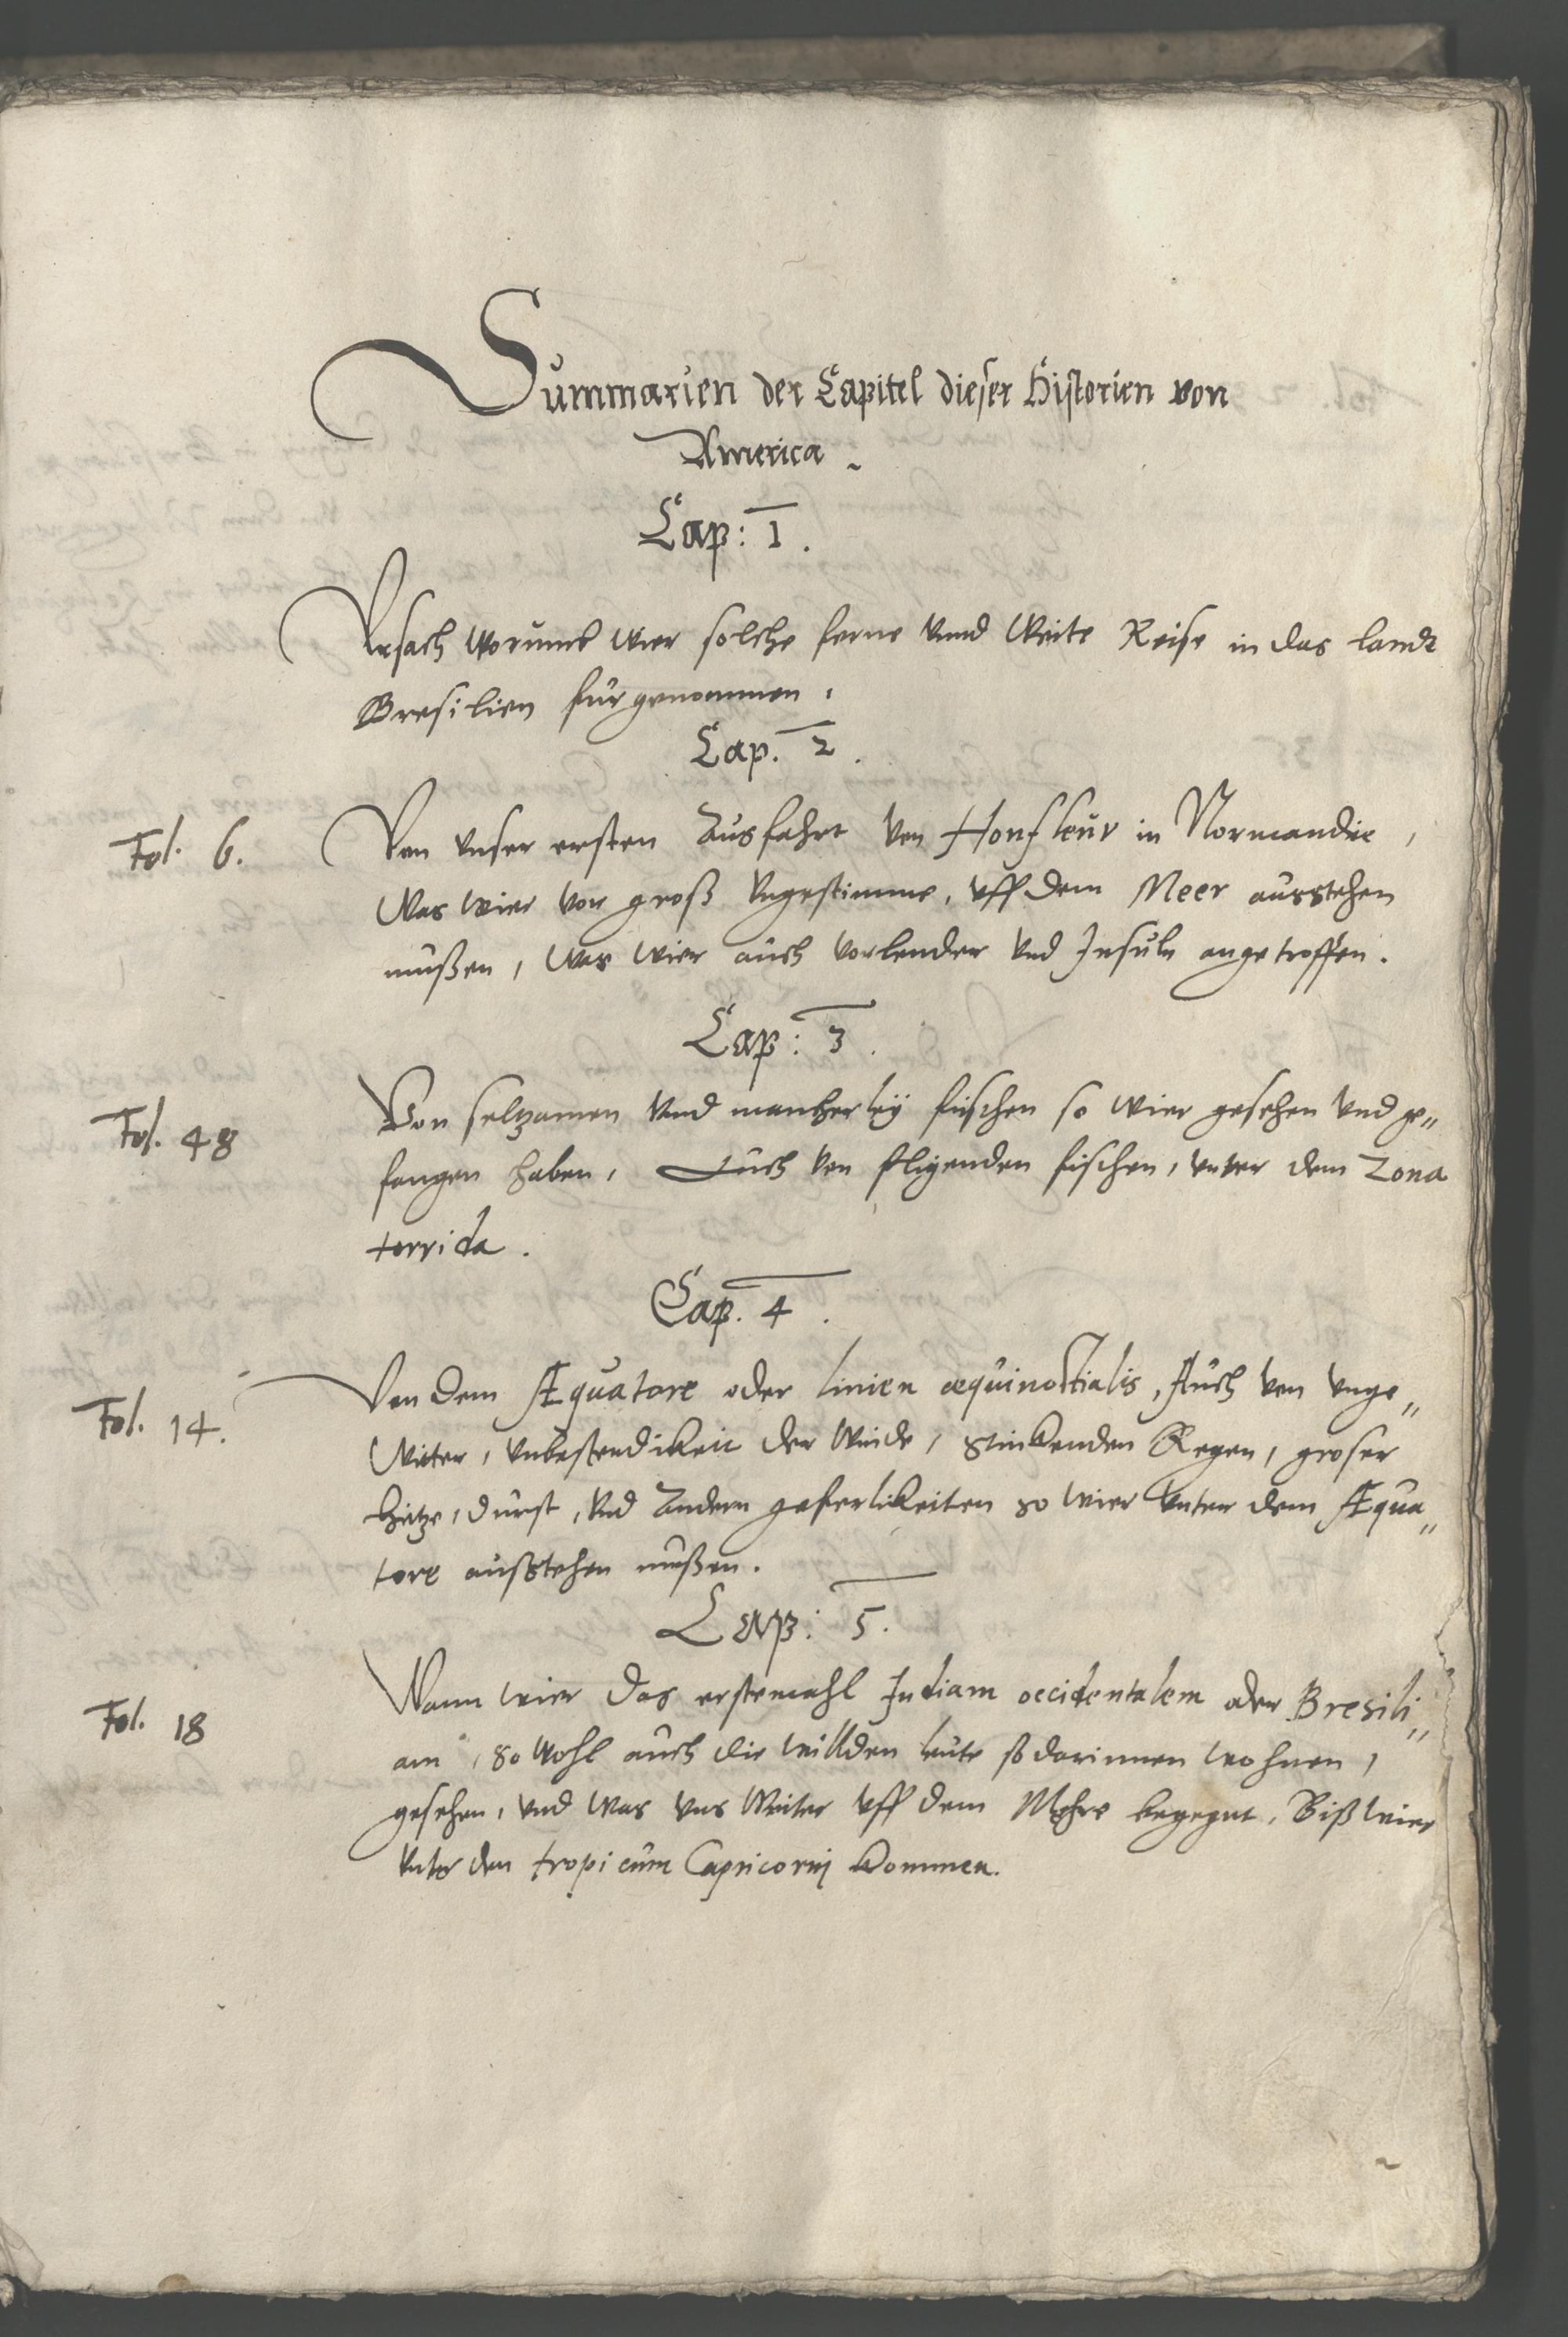 Summarien der Capitel dieser Historien von
America.
Cap: 1.
Vrsach worumb wier solche ferne vnnd weite Reise in das landt
Bresilien fürgenommen.
Cap. 2.
Fol. 6.
Von vnser ersten Ausfahrt von Honfleur in Normandie,
Was wier vor groß vngestimme, vff dem Meer ausstehen
müßen, was wier auch vor lender vnd Insuln angetroffen.
Cap: 3.
Fol. 48
Von seltzamen vnd mancherleÿ fischen so wier gesehen vnd ge„
fangen haben, Auch von fligenden fischen, vnter dem Zona
torrida.
Cap. 4.
Fol. 14.
Von dem Æquatore oder linien æquinoctialis, Auch von vnge„
witer, vnbestendikeit der Winde, stinkenden Regen, groser
hitze, durst, vnd Andern geferlikeiten so wier vnter dem Æqua„
tore außstehen mußen.
Cap: 5.
Fol. 18
Wann wier das erstemahl Indiam occidentalem oder Bresili„
am, so wohl auch die willden leute so darinnen wohnen,
gesehen, vnd was vns weiter vff dem Mehre begegnt, Biß wier
vnter den tropicum Capricornj kommen.